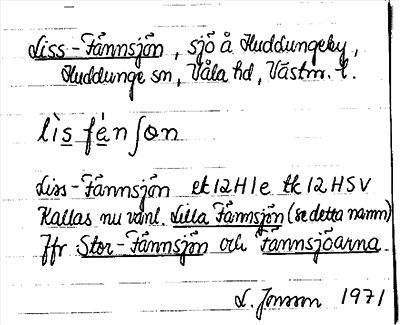 Liss-Fännsjön, sjö å Huddungeby,
Huddunge sn, Våla hd, Västm. l.
lìs fǽnʃøn
Liss-Fännsjön ek 12 H 1 e tk 12 H SV
Kallas nu vanl. Lilla Fännsjön (se detta namn)
Jfr Stor-Fännsjön och Fännsjöarna.
L. Jonsson 1971